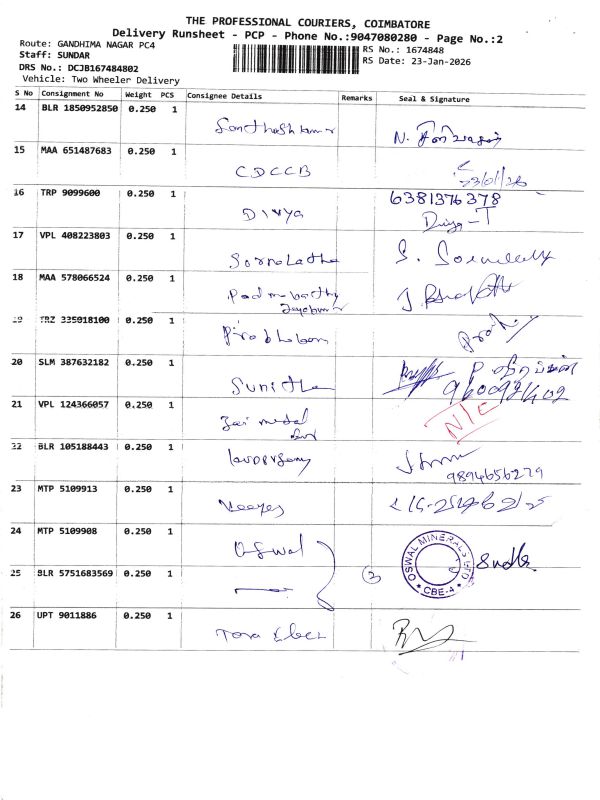 THE PROFESSIONAL COURIERS, COIMBATORE
Delivery Runsheet - PCP - Phone No.:9047080280 - Page No.:2
Route: GANDHIMA NAGAR PC4
Staff: SUNDAR
DRS No.: DCJB167484802
Vehicle: Two Wheeler Delivery
RS No.: 1674848
RS Date: 23-Jan-2026
S No Consignment No Weight PCS Consignee Details Remarks Seal & Signature
14 BLR 1850952850 0.250 1 Santhosh kumar
15 MAA 651487683 0.250 1 CDCCB 23/01/26
16 TRP 9099600 0.250 1 DIVYA 6381376378
Divya-T
17 VPL 408223803 0.250 1 Sornalatha S.
18 MAA 578066524 0.250 1 Padmavathy
Jayakumar
19 TRZ 335018100 0.250 1 Prabhakaran
20 SLM 387632182 0.250 1 Sunitha
21 VPL 124366057 0.250 1 Jai metal N/C
22 BLR 105188443 0.250 1 9894656279
23 MTP 5109913 0.250 1
24 MTP 5109908 0.250 1 Oswal
OSWAL MINERALS LTD
* CBE-4 *
25 BLR 5751683569 0.250 1 3
26 UPT 9011886 0.250 1